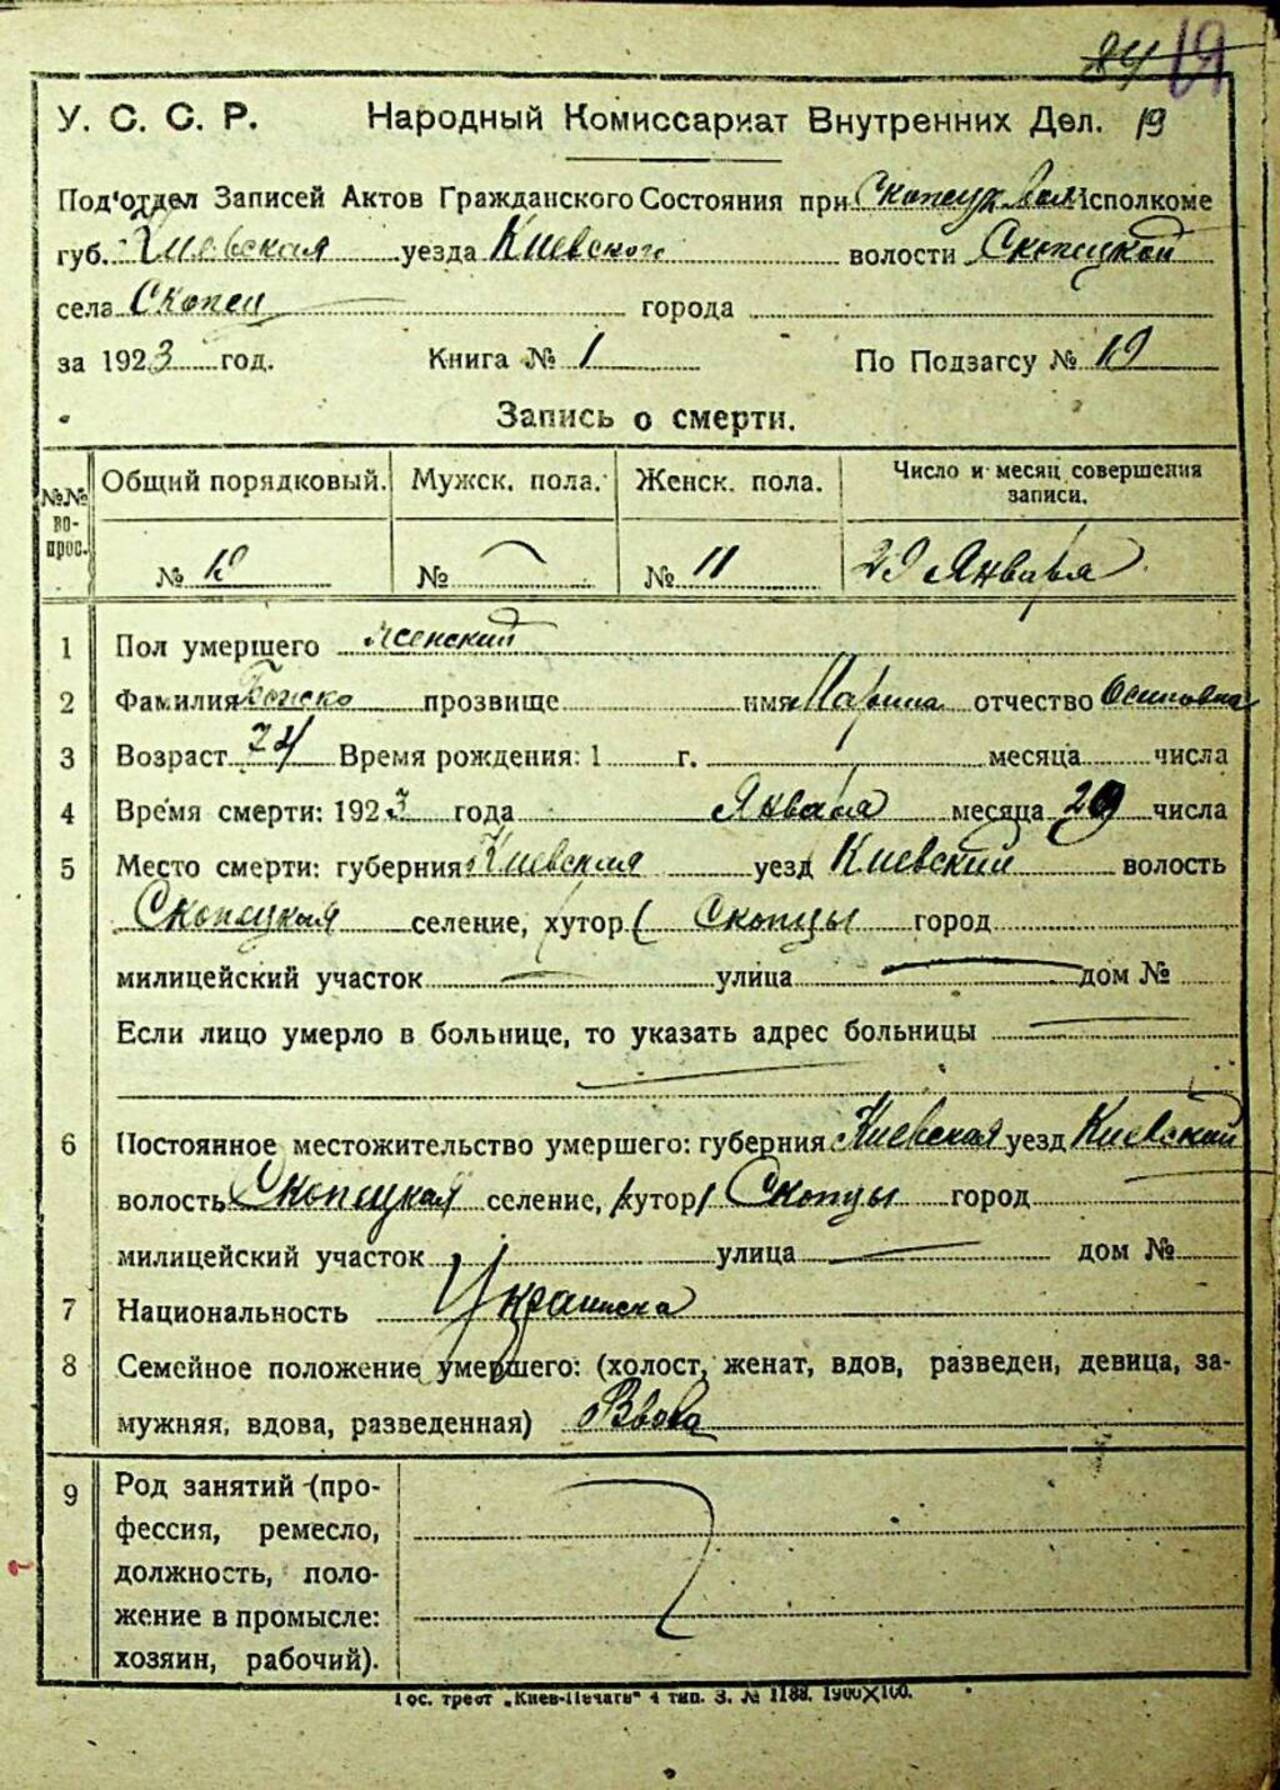 84 19
У. С. С. Р. Народный Комиссариат Внутренних Дел. 19
Под'отдел Записей Актов Гражданского Состояния при Исполкоме
губ. Киевская уезда Киевского волости Скопецкой
села города
за 1923 год. Книга № 1 По Подзагсу № 19
Запись о смерти.
№№ во-прос. Общий порядковый. Мужск. пола. Женск. пола. Число и месяц совершения
записи.
№ № № 11 29 Января
1 Пол умершего женский
2 Фамилия прозвище имя Марина отчество Осиповна
3 Возраст 74 Время рождения: 1 г. месяца числа
4 Время смерти: 1923 года Января месяца 29 числа
5 Место смерти: губерния Киевская уезд Киевский волость
Скопецкая селение, хутор ( Скопцы город
милицейский участок улица дом №
Если лицо умерло в больнице, то указать адрес больницы
6 Постоянное местожительство умершего: губерния Киевская уезд Киевский
волость Скопецкая селение, хутор Скопцы город
милицейский участок улица дом №
7 Национальность Украинска
8 Семейное положение умершего: (холост, женат, вдов, разведен, девица, за-
мужняя, вдова, разведенная) Вдова
9 Род занятий (про-
фессия, ремесло,
должность, поло-
жение в промысле:
хозяин, рабочий).
Гос. трест „Киев-Печать" 4 тип. З. № 1188. 1900×100.